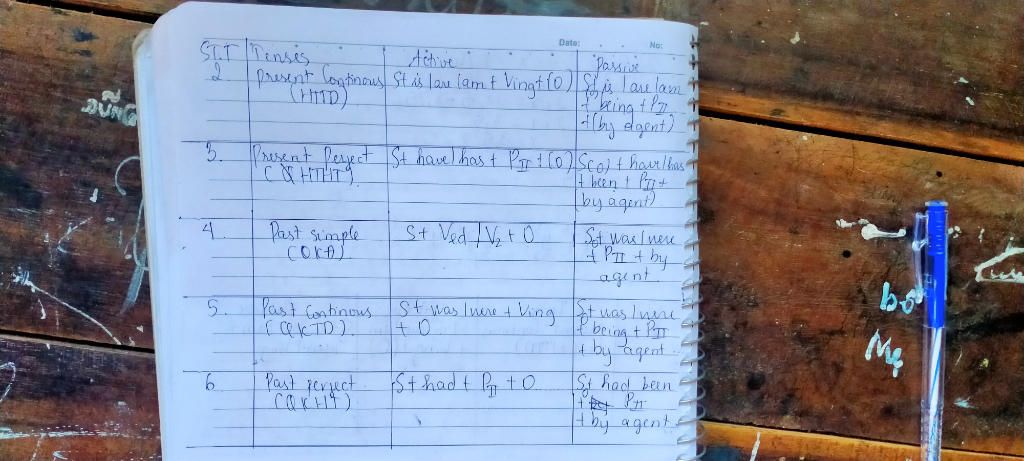 Date: No:
STT Tenses Active Passive
2 present Continous S+ is/are/am + Ving + (O) S+ is/are/am
(HTTD) + being + PII
+ (by agent)
3. Present Perfect S+ have/has + PII + (O) S(O) + have/has
+ been + PII +
by agent)
4 Past simple S+ Ved / V2 + O S+ was/were
(QKĐ) + PII + by
agent
5. Past Continous S+ was/were + Ving S+ was/were
(QKTD) + O + being + PII
+ by agent.
6 Past perfect S+ had + PII + O S+ had been
(QKHT) + PII
+ by agent.
Me